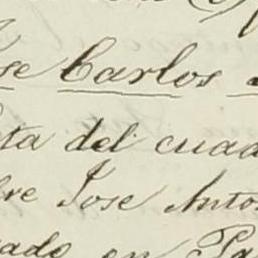 se Carlos
ta del cuad
re Jose Anto
ado en Pa